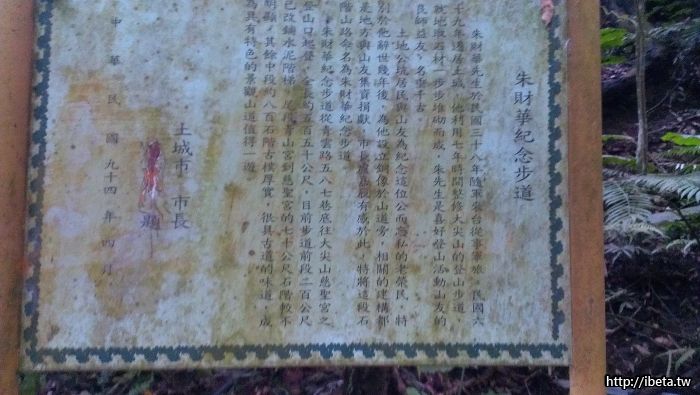 朱財華紀念步道
朱財華先生於民國三十八年隨軍來台從事軍旅。民國六
十九年遷居土城，他利用七年時間整修大尖山的登山步道，
就地取石材一步一步堆砌而成，朱先生是喜好登山活動山友的
良師益友，名垂千古。
土地公坑居民與山友為紀念這位公而忘私的老榮民，特
別於他辭世幾年後，為他設立銅像於山道旁，相關的建構都
是地方與山友集資捐獻。市長 有感於此，特將這段石
階山路命名為朱財華紀念步道。
朱財華紀念步道從青雲路五八七巷底往大尖山慈聖宮之
登山口起登，全長約五百五十公尺，目前步道前段二百公尺
已改鋪水泥階梯，尾段青山宮到慈聖宮的七十公尺石階較不
明顯，其餘中段約八百石階古樸厚實，很具古道的味道，成
為具有特色的景觀山道值得一遊。
土城市 市長 題
中華民國九十四年四月
http://ibeta.tw